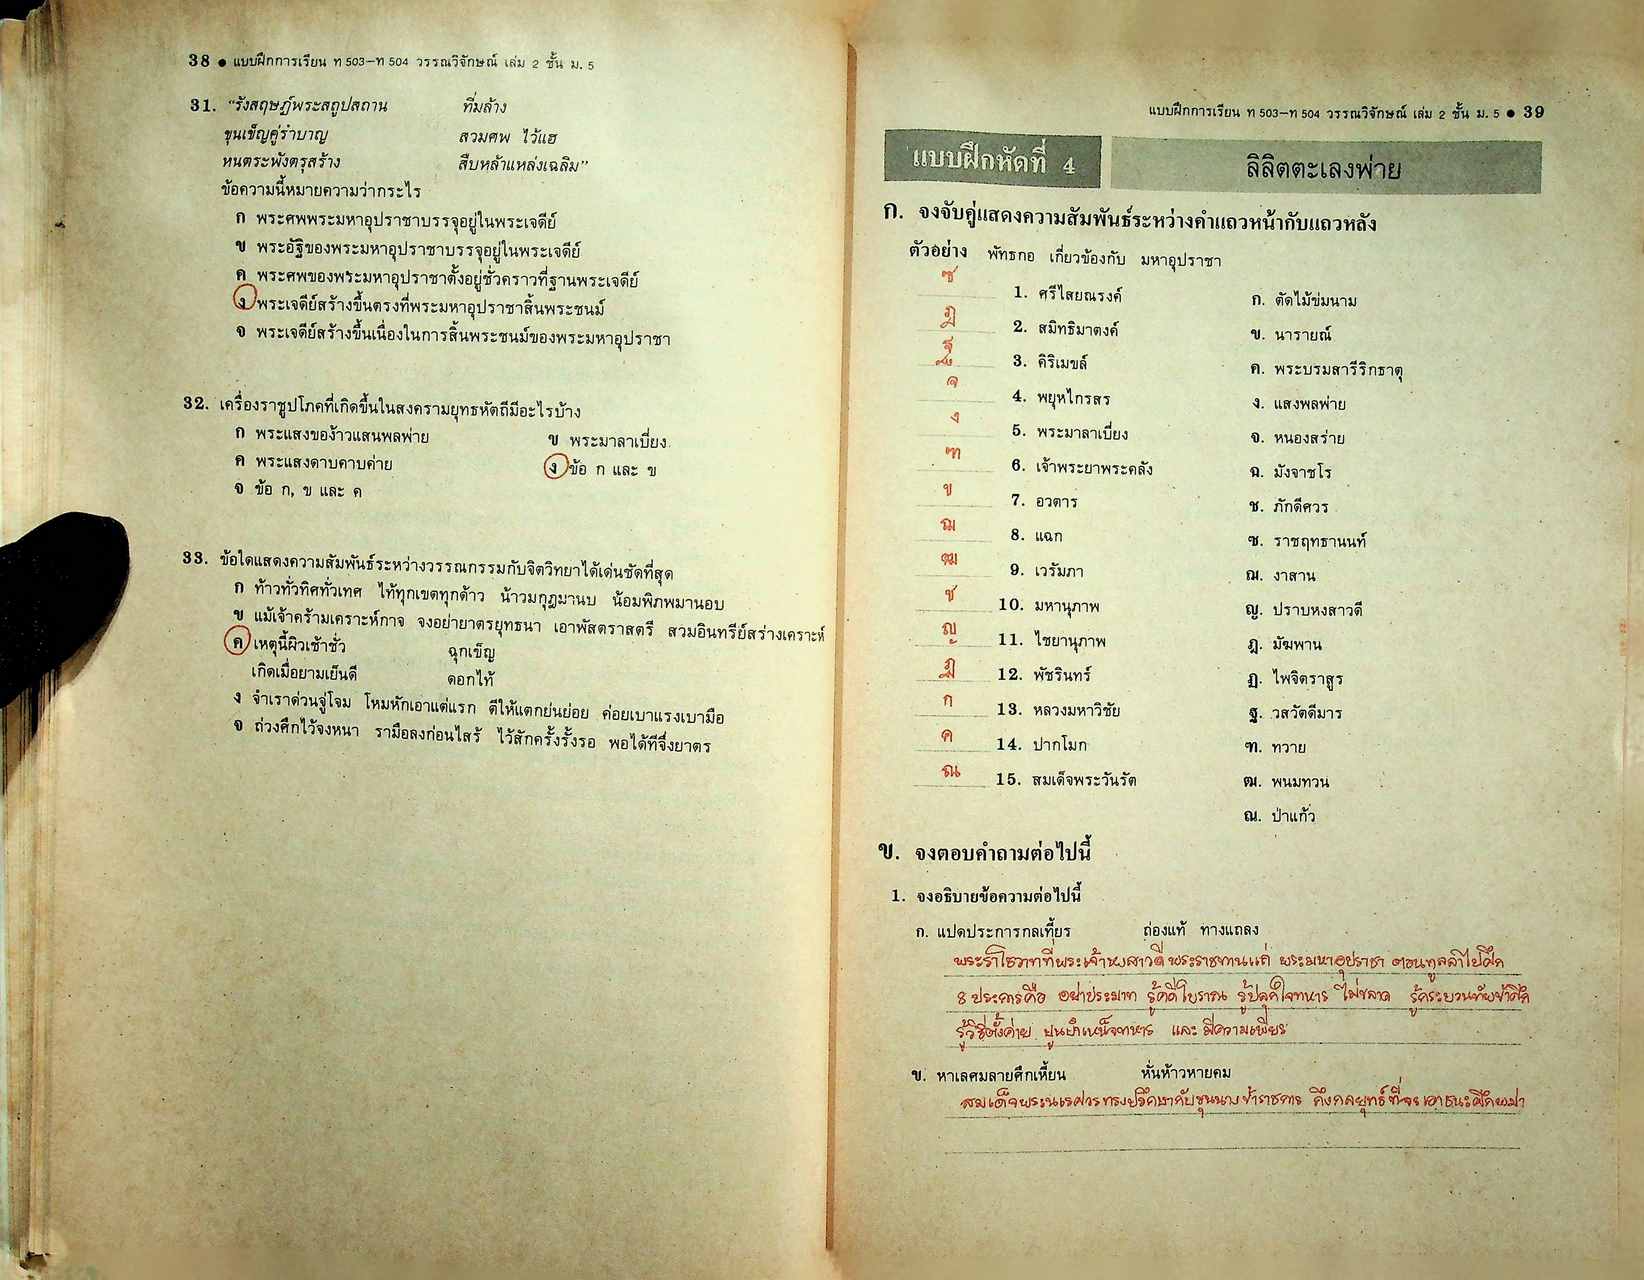 38 ● แบบฝึกการเรียน ท 503–ท 504 วรรณวิจักษณ์ เล่ม 2 ชั้น ม. 5
31. “รังสฤษฎ์พระสถูปสถาน ที่มล้าง
ขุนเข็ญคู่รำบาญ สวมศพ ไว้แฮ
หนตระพังตรุสร้าง สืบหล้าแหล่งเฉลิม”
ข้อความนี้หมายความว่ากระไร
ก พระศพพระมหาอุปราชาบรรจุอยู่ในพระเจดีย์
ข พระอัฐิของพระมหาอุปราชาบรรจุอยู่ในพระเจดีย์
ค พระศพของพระมหาอุปราชาตั้งอยู่ชั่วคราวที่ฐานพระเจดีย์
ง พระเจดีย์สร้างขึ้นตรงที่พระมหาอุปราชาสิ้นพระชนม์
จ พระเจดีย์สร้างขึ้นเนื่องในการสิ้นพระชนม์ของพระมหาอุปราชา
32. เครื่องราชูปโภคที่เกิดขึ้นในสงครามยุทธหัตถีมีอะไรบ้าง
ก พระแสงของ้าวแสนพลพ่าย ข พระมาลาเบี่ยง
ค พระแสงดาบคาบค่าย ง ข้อ ก และ ข
จ ข้อ ก, ข และ ค
33. ข้อใดแสดงความสัมพันธ์ระหว่างวรรณกรรมกับจิตวิทยาได้เด่นชัดที่สุด
ก ท้าวทั่วทิศทั่วเทศ ไท้ทุกเขตทุกด้าว น้าวมกุฎมานบ น้อมพิภพมานอบ
ข แม้เจ้าคร้ามเคราะห์กาจ จงอย่ายาตรยุทธนา เอาพัสตราสตรี สวมอินทรีย์สร่างเคราะห์
ค เหตุนี้ผิวเช้าชั่ว ฉุกเข็ญ
เกิดเมื่อยามเย็นดี ดอกไท้
ง จำเราด่วนจู่โจม โหมหักเอาแต่แรก ตีให้แตกย่นย่อย ค่อยเบาแรงเบามือ
จ ถ่วงศึกไว้จงหนา รามือลงก่อนไสร้ ไว้สักครั้งรั้งรอ พอได้ทีจึ่งยาตร
แบบฝึกการเรียน ท 503–ท 504 วรรณวิจักษณ์ เล่ม 2 ชั้น ม. 5 ● 39
แบบฝึกหัดที่ 4 ลิลิตตะเลงพ่าย
ก. จงจับคู่แสดงความสัมพันธ์ระหว่างคำแถวหน้ากับแถวหลัง
ตัวอย่าง พัทธกอ เกี่ยวข้องกับ มหาอุปราชา
ซ 1. ศรีไสยณรงค์ ก. ตัดไม้ข่มนาม
ฎ 2. สมิทธิมาตงค์ ข. นารายณ์
ฐ 3. คิริเมขล์ ค. พระบรมสารีริกธาตุ
จ 4. พยุหไกรสร ง. แสงพลพ่าย
ง 5. พระมาลาเบี่ยง จ. หนองสร่าย
ฑ 6. เจ้าพระยาพระคลัง ฉ. มังจาชโร
ข 7. อวตาร ช. ภักดีศวร
ฌ 8. แฉก ซ. ราชฤทธานนท์
ฒ 9. เวรัมภา ฌ. งาสาน
ช 10. มหานุภาพ ญ. ปราบหงสาวดี
ญ 11. ไชยานุภาพ ฎ. มัฆพาน
ฏ 12. พัชรินทร์ ฏ. ไพจิตราสูร
ก 13. หลวงมหาวิชัย ฐ. วสวัตดีมาร
ค 14. ปากโมก ฑ. ทวาย
ณ 15. สมเด็จพระวันรัต ฒ. พนมทวน
ณ. ป่าแก้ว
ข. จงตอบคำถามต่อไปนี้
1. จงอธิบายข้อความต่อไปนี้
ก. แปดประการกลเที้ยร ถ่องแท้ ทางแถลง
พระราโชวาทที่พระเจ้าหงสาวดี พระราชทานแก่ พระมหาอุปราชา ตอนทูลลาไปศึก
8 ประการคือ อย่าประมาท รู้คดีโบราณ รู้ปลุกใจทหาร ไม่ขลาด รู้กระบวนทัพข้าศึก
รู้วิธีตั้งค่าย ปูนบำเหน็จทหาร และ มีความเพียร
ข. หาเลศมลายศึกเหี้ยน หั่นห้าวหายคม
สมเด็จพระนเรศวรทรงปรึกษากับขุนนางข้าราชการ ถึงกลยุทธ์ที่จะเอาชนะศึกพม่า